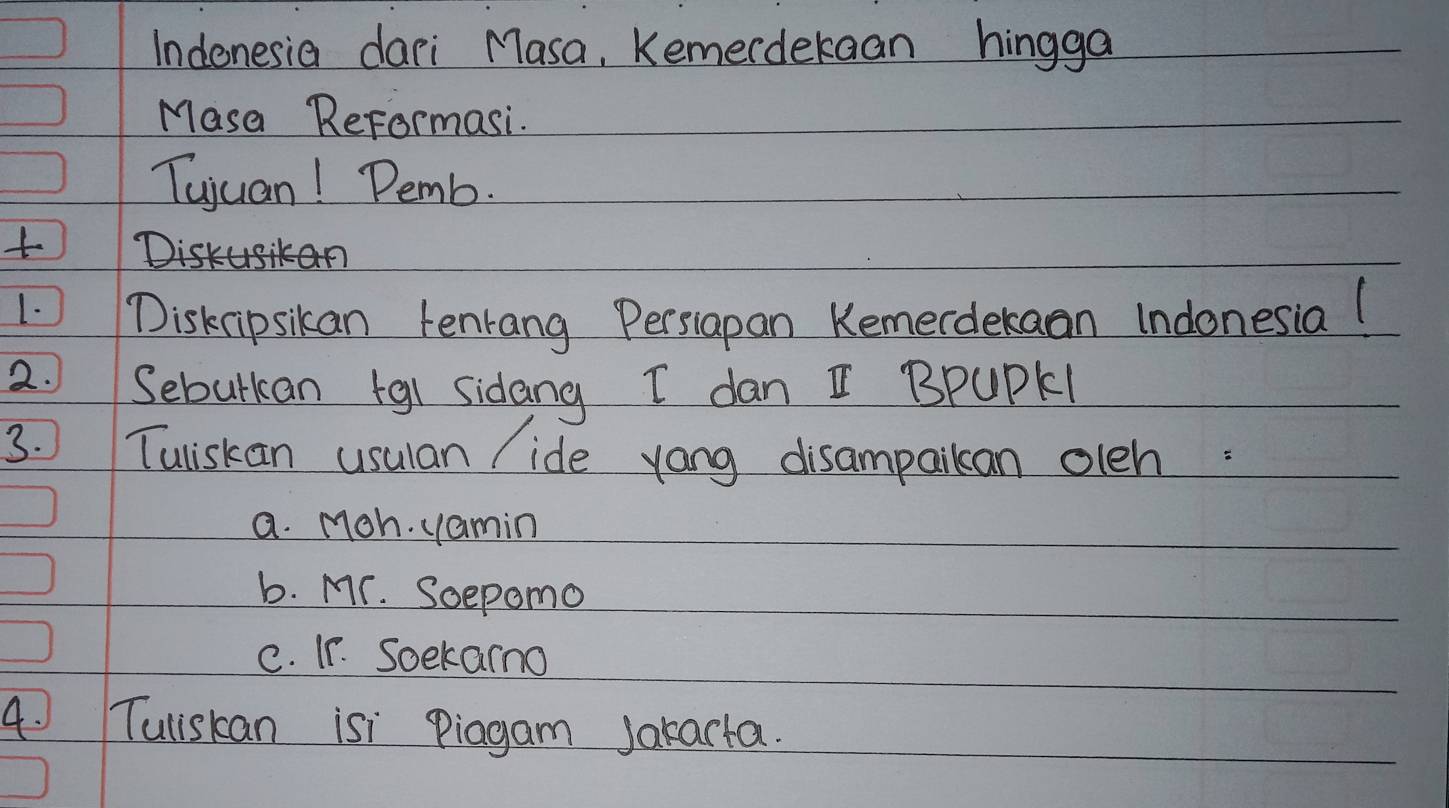 Indonesia dari Masa, Kemerdekaan hingga
Masa Reformasi.
Tujuan! Pemb.
+ Diskusikan
1. Diskripsikan tentang Persiapan Kemerdekaan Indonesia!
2. Seburkan tgl sidang I dan II BPUPKI
3. Tuliskan usulan/ide yang disampaikan oleh :
a. Moh. yamin
b. Mr. Soepomo
c. Ir. Soekarno
4. Tuliskan isi Piagam Jakarta.